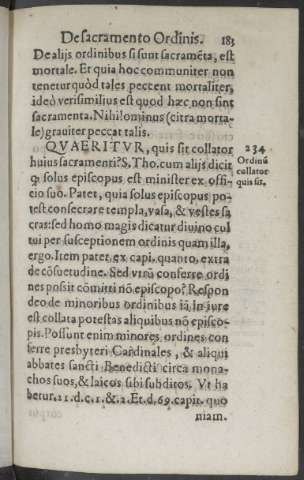 De sacramento Ordinis. 183
De alijs ordinibus si sunt sacramẽta, est
mortale. Et quia hoc communiter non
tenetur quòd tales peccent mortaliter,
ideò verisimilius est quod hæc non sint
sacramenta. Nihilominus (citra morta-
le) grauiter peccat talis.
QVAERITVR, quis sit collator
huius sacramenti? S. Tho. cum alijs dicit
q; solus episcopus est minister ex offi-
cio suo. Patet, quia solus episcopus po-
test consecrare templa, vasa, & vestes sa
cras: sed homo magis dicatur diuino cul
tui per susceptionem ordinis quam illa,
ergo. Item patet ex capi. quanto, extra
de cõsuetudine. Sed vtrũ conferre ordi
nes possit cõmitti nõ episcopo? Respon
deo de minoribus ordinibus iã In iure
est collata potestas aliquibus nõ episco-
pis. Possunt enim minores ordines con
ferre presbyteri Cardinales, & aliqui
abbates sancti Benedicti circa mona-
chos suos, & laicos sibi subditos. Vt ha
betur. 21. d. c. 1. & 2. Et d. 69. capit. quo
niam.
234
Ordinũ
collator
quis sit.